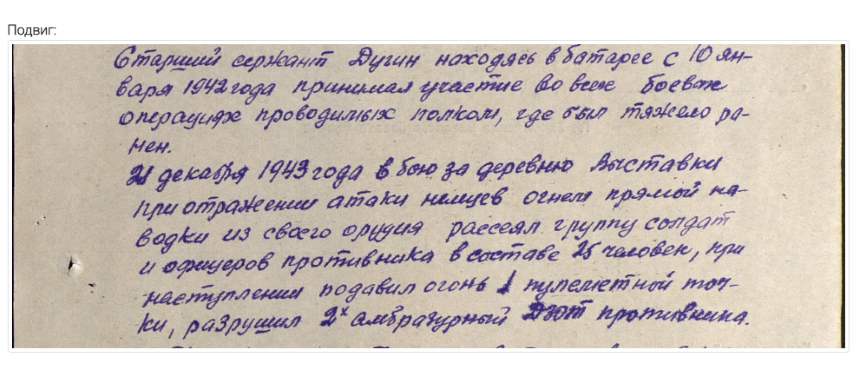 Подвиг:
Старший сержант Дугин находясь в батарее с 10 ян-
варя 1942 года принимал участие во всех боевых
операциях проводимых полком, где был тяжело ра-
нен.
21 декабря 1943 года в бою за деревню Выставки
при отражении атаки немцев огнем прямой на-
водки из своего орудия рассеял группу солдат
и офицеров противника в составе 25 человек, при
наступлении подавил огонь 1 пулеметной точ-
ки, разрушил 2х амбразурный Дзот противника.